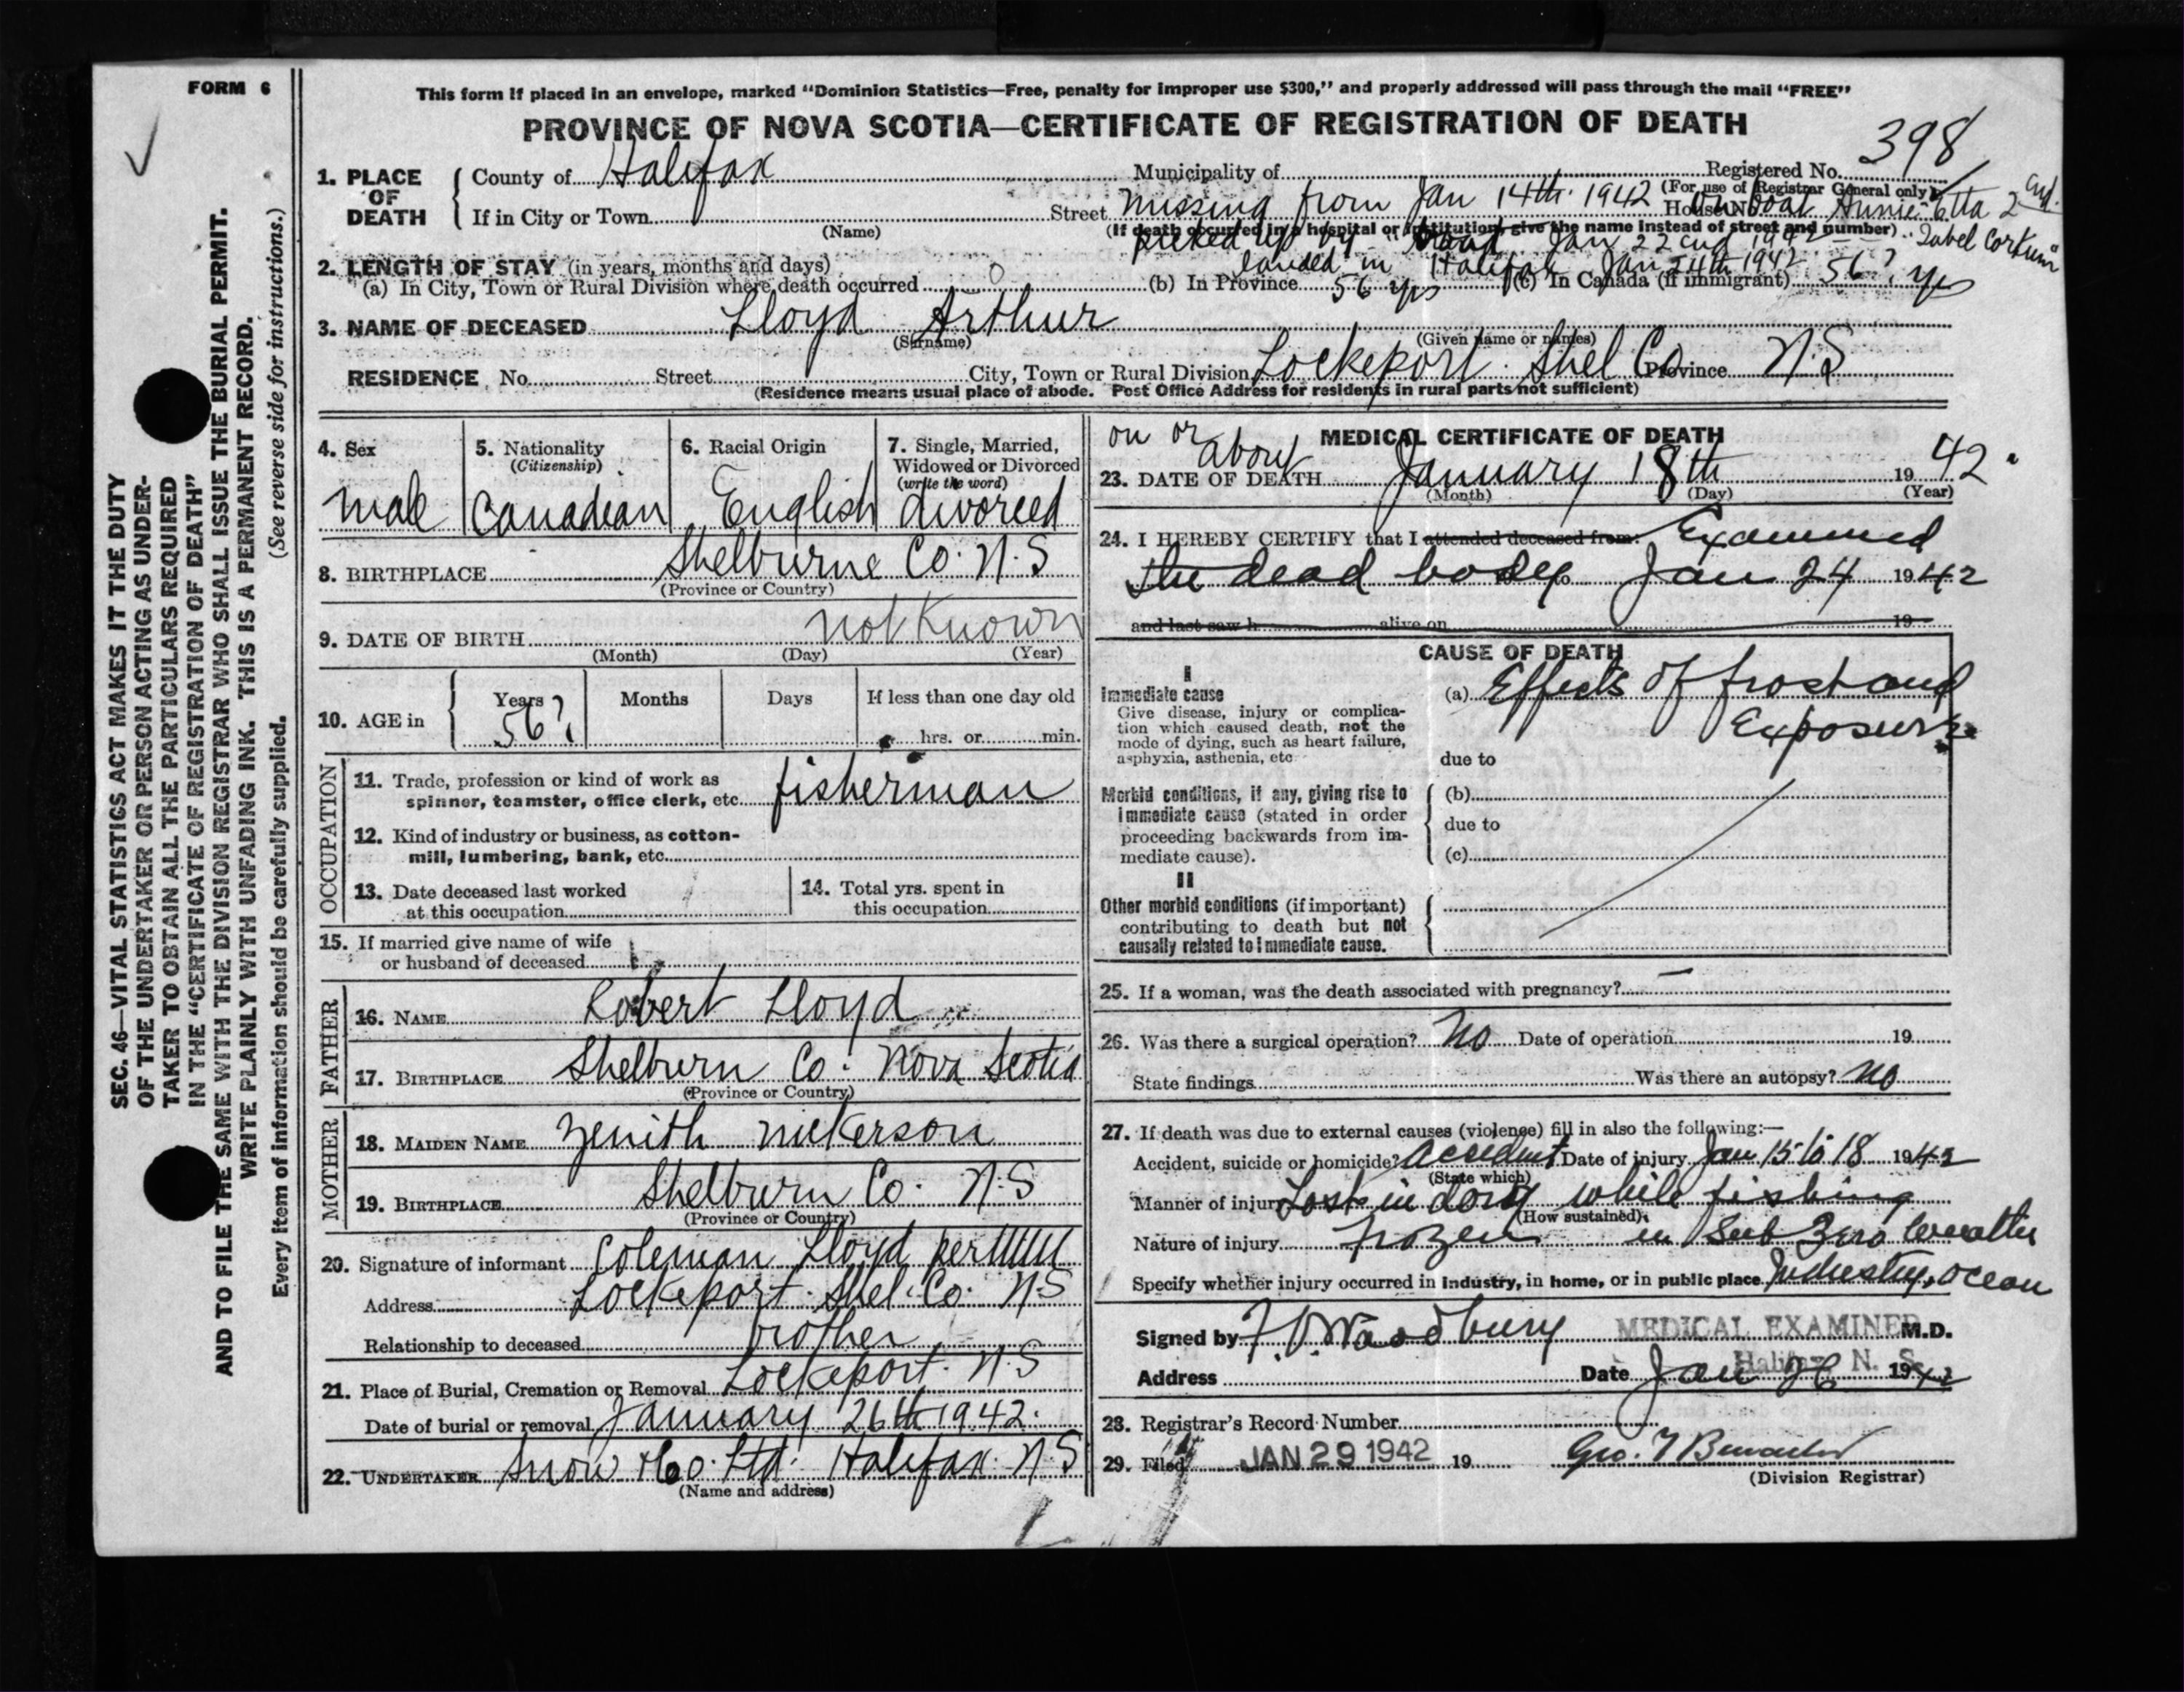 FORM 6
This form if placed in an envelope, marked "Dominion Statistics—Free, penalty for improper use $300," and properly addressed will pass through the mail "FREE"
PROVINCE OF NOVA SCOTIA—CERTIFICATE OF REGISTRATION OF DEATH
398
1. PLACE OF DEATH
County of Halifax Municipality of Registered No.
(For use of Registrar General only)
If in City or Town Street missing from Jan 14th 1942 House No. on boat Annie Etta 2nd
(Name) (If death occurred in a hospital or institution, give the name instead of street and number)
picked up by boat Jan 22cnd 1942 "Isabel Corkum"
landed in Halifax Jan 24th 1942
2. LENGTH OF STAY (in years, months and days)
(a) In City, Town or Rural Division where death occurred 0 (b) In Province 56 yrs (c) In Canada (if immigrant) 56? yrs
3. NAME OF DECEASED Lloyd Arthur
(Surname) (Given name or names)
RESIDENCE No. Street City, Town or Rural Division Lockeport Shel Co Province N.S
(Residence means usual place of abode. Post Office Address for residents in rural parts not sufficient)
4. Sex
male
5. Nationality
(Citizenship)
Canadian
6. Racial Origin
English
7. Single, Married,
Widowed or Divorced
(write the word)
divorced
8. BIRTHPLACE Shelburne Co. N.S
(Province or Country)
9. DATE OF BIRTH not known
(Month) (Day) (Year)
10. AGE in Years 56? Months Days If less than one day old
hrs. or min.
OCCUPATION
11. Trade, profession or kind of work as
spinner, teamster, office clerk, etc. fisherman
12. Kind of industry or business, as cotton-
mill, lumbering, bank, etc.
13. Date deceased last worked
at this occupation
14. Total yrs. spent in
this occupation
15. If married give name of wife
or husband of deceased
FATHER
16. NAME Robert Lloyd
17. BIRTHPLACE Shelburn Co. Nova Scotia
(Province or Country)
MOTHER
18. MAIDEN NAME Zenith Nickerson
19. BIRTHPLACE Shelburn Co. N.S
(Province or Country)
20. Signature of informant Coleman Lloyd per
Address Lockeport Shel. Co. N.S
Relationship to deceased brother
21. Place of Burial, Cremation or Removal Lockeport. N.S
Date of burial or removal January 26th 1942.
22. UNDERTAKER Snow & Co. Ltd. Halifax N.S
(Name and address)
on or about
MEDICAL CERTIFICATE OF DEATH
23. DATE OF DEATH January 18th 1942
(Month) (Day) (Year)
24. I HEREBY CERTIFY that I attended deceased from: Examined
the dead body to Jan 24 1942
and last saw h alive on 19
CAUSE OF DEATH
I
Immediate cause
Give disease, injury or complica-
tion which caused death, not the
mode of dying, such as heart failure,
asphyxia, asthenia, etc
(a) Effects of frost and
Exposure
due to
Morbid conditions, if any, giving rise to
immediate cause (stated in order
proceeding backwards from im-
mediate cause).
(b)
due to
(c)
II
Other morbid conditions (if important)
contributing to death but not
causally related to immediate cause.
25. If a woman, was the death associated with pregnancy? —
26. Was there a surgical operation? No Date of operation 19
State findings Was there an autopsy? No
27. If death was due to external causes (violence) fill in also the following:—
Accident, suicide or homicide? Accident Date of injury Jan 15 to 18 1942
(State which)
Manner of injury Lost in dory while fishing
(How sustained)
Nature of injury Frozen in Sub Zero weather
Specify whether injury occurred in industry, in home, or in public place Industry, Ocean
Signed by Woodbury MEDICAL EXAMINER M.D.
Halifax N. S.
Address Date Jan 26 1942
28. Registrar's Record Number
29. Filed JAN 29 1942 19 Geo.
(Division Registrar)
SEC. 46—VITAL STATISTICS ACT MAKES IT THE DUTY
OF THE UNDERTAKER OR PERSON ACTING AS UNDER-
TAKER TO OBTAIN ALL THE PARTICULARS REQUIRED
IN THE "CERTIFICATE OF REGISTRATION OF DEATH"
AND TO FILE THE SAME WITH THE DIVISION REGISTRAR WHO SHALL ISSUE THE BURIAL PERMIT.
WRITE PLAINLY WITH UNFADING INK. THIS IS A PERMANENT RECORD.
Every item of information should be carefully supplied. (See reverse side for instructions.)